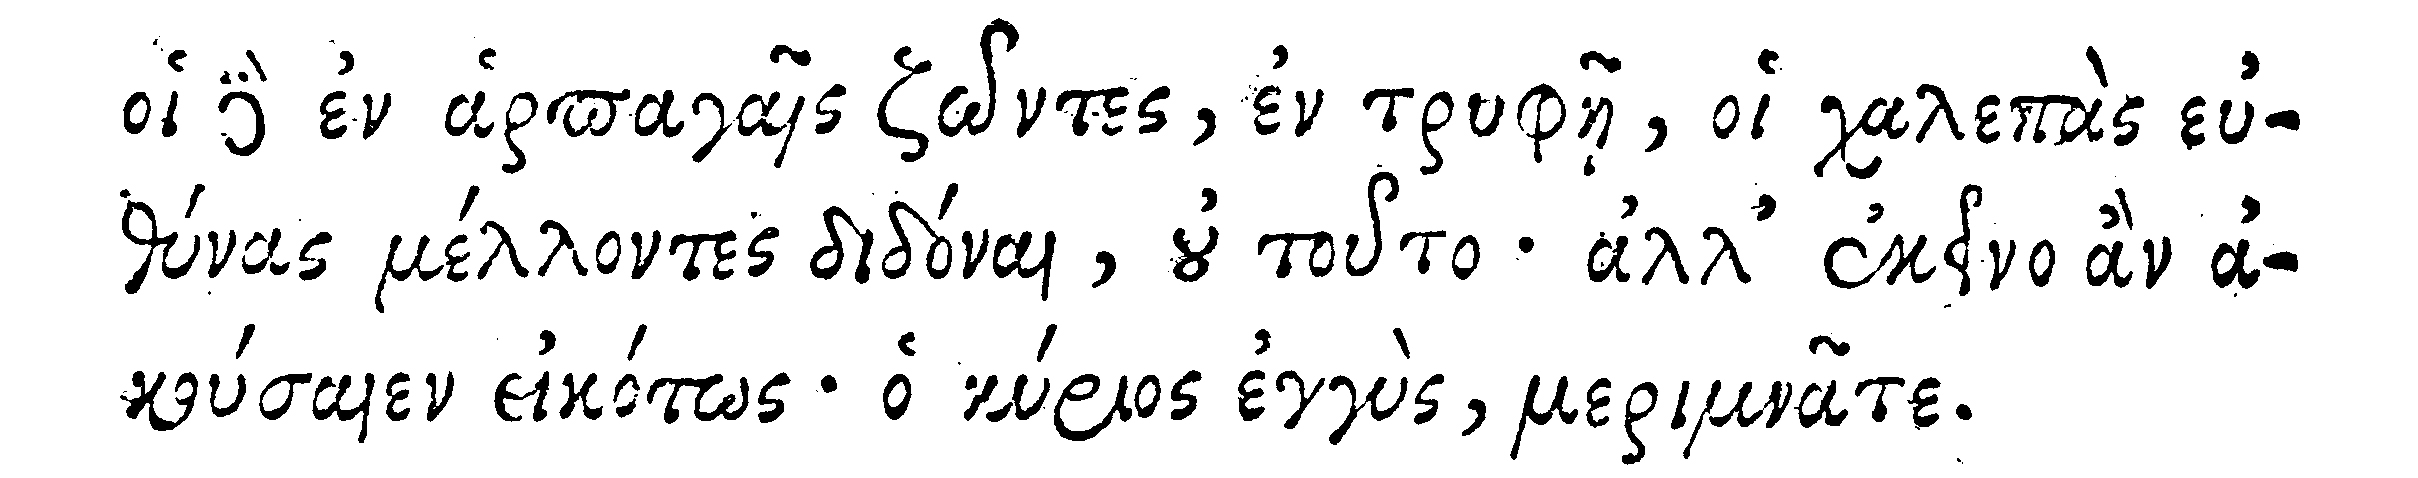 οἱ δὲ ἐν ἁρπαγαῖς ζῶντες, ἐν τρυφῇ, οἱ χαλεπὰς εὐ-
θύνας μέλλοντες διδόναι, οὐ τοῦτο· ἀλλ’ ἐκεῖνο ἂν ἀ-
κούσαιεν εἰκότως· ὁ κύριος ἐγγὺς, μεριμνᾶτε.